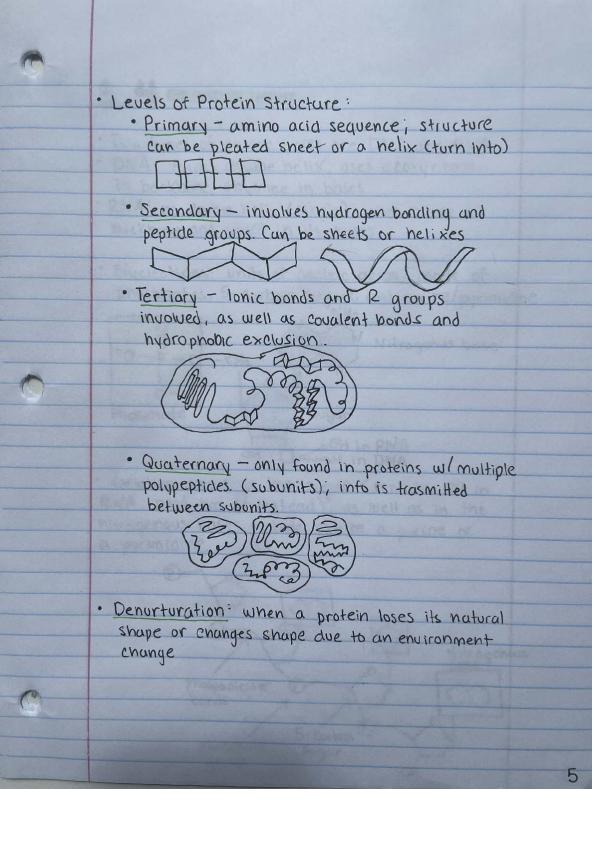 • Levels of Protein Structure:
• Primary - amino acid sequence; structure
can be pleated sheet or a helix (turn into)
• Secondary - involves hydrogen bonding and
peptide groups. Can be sheets or helixes
• Tertiary - Ionic bonds and R groups
involved, as well as covalent bonds and
hydrophobic exclusion.
• Quaternary - only found in proteins w/ multiple
polypeptides. (subunits); info is trasmitted
between subunits.
• Denurturation: when a protein loses its natural
shape or changes shape due to an environment
change
5